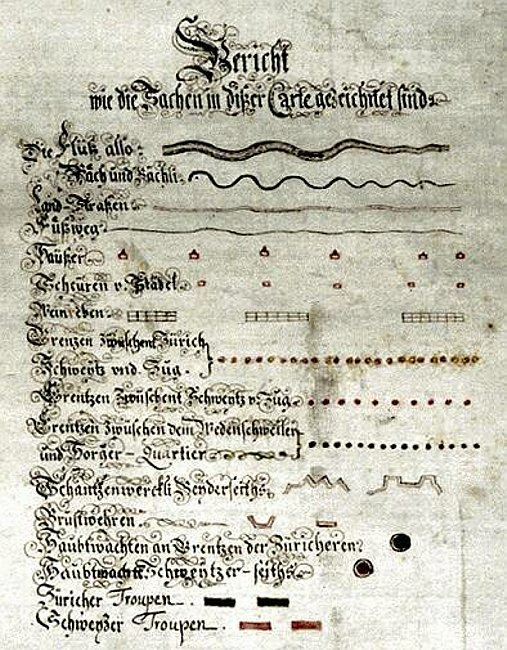 Bericht
wie die Sachen in dißer Carte gezeichnet sind.
Die Flüß also:
Bäch und Bächli.
Land-Straßen
Fußweg
Häußer
Scheüren v. Städel
Weinreben
Grenzen zwüschent Zürich
Schweytz und Zug.
Grentzen Zwüschent Schweytz v. Zug
Grentzen zwüschen dem Wedenschweiler
und Horger-Quartier
Schantzenwerckli Beyderseiths
Brustwehren
Haubtwachten an Grentzen der Züricheren
Haubtwachte Schweytzer-seiths
Züricher Troupen.
Schweyßer Troupen.